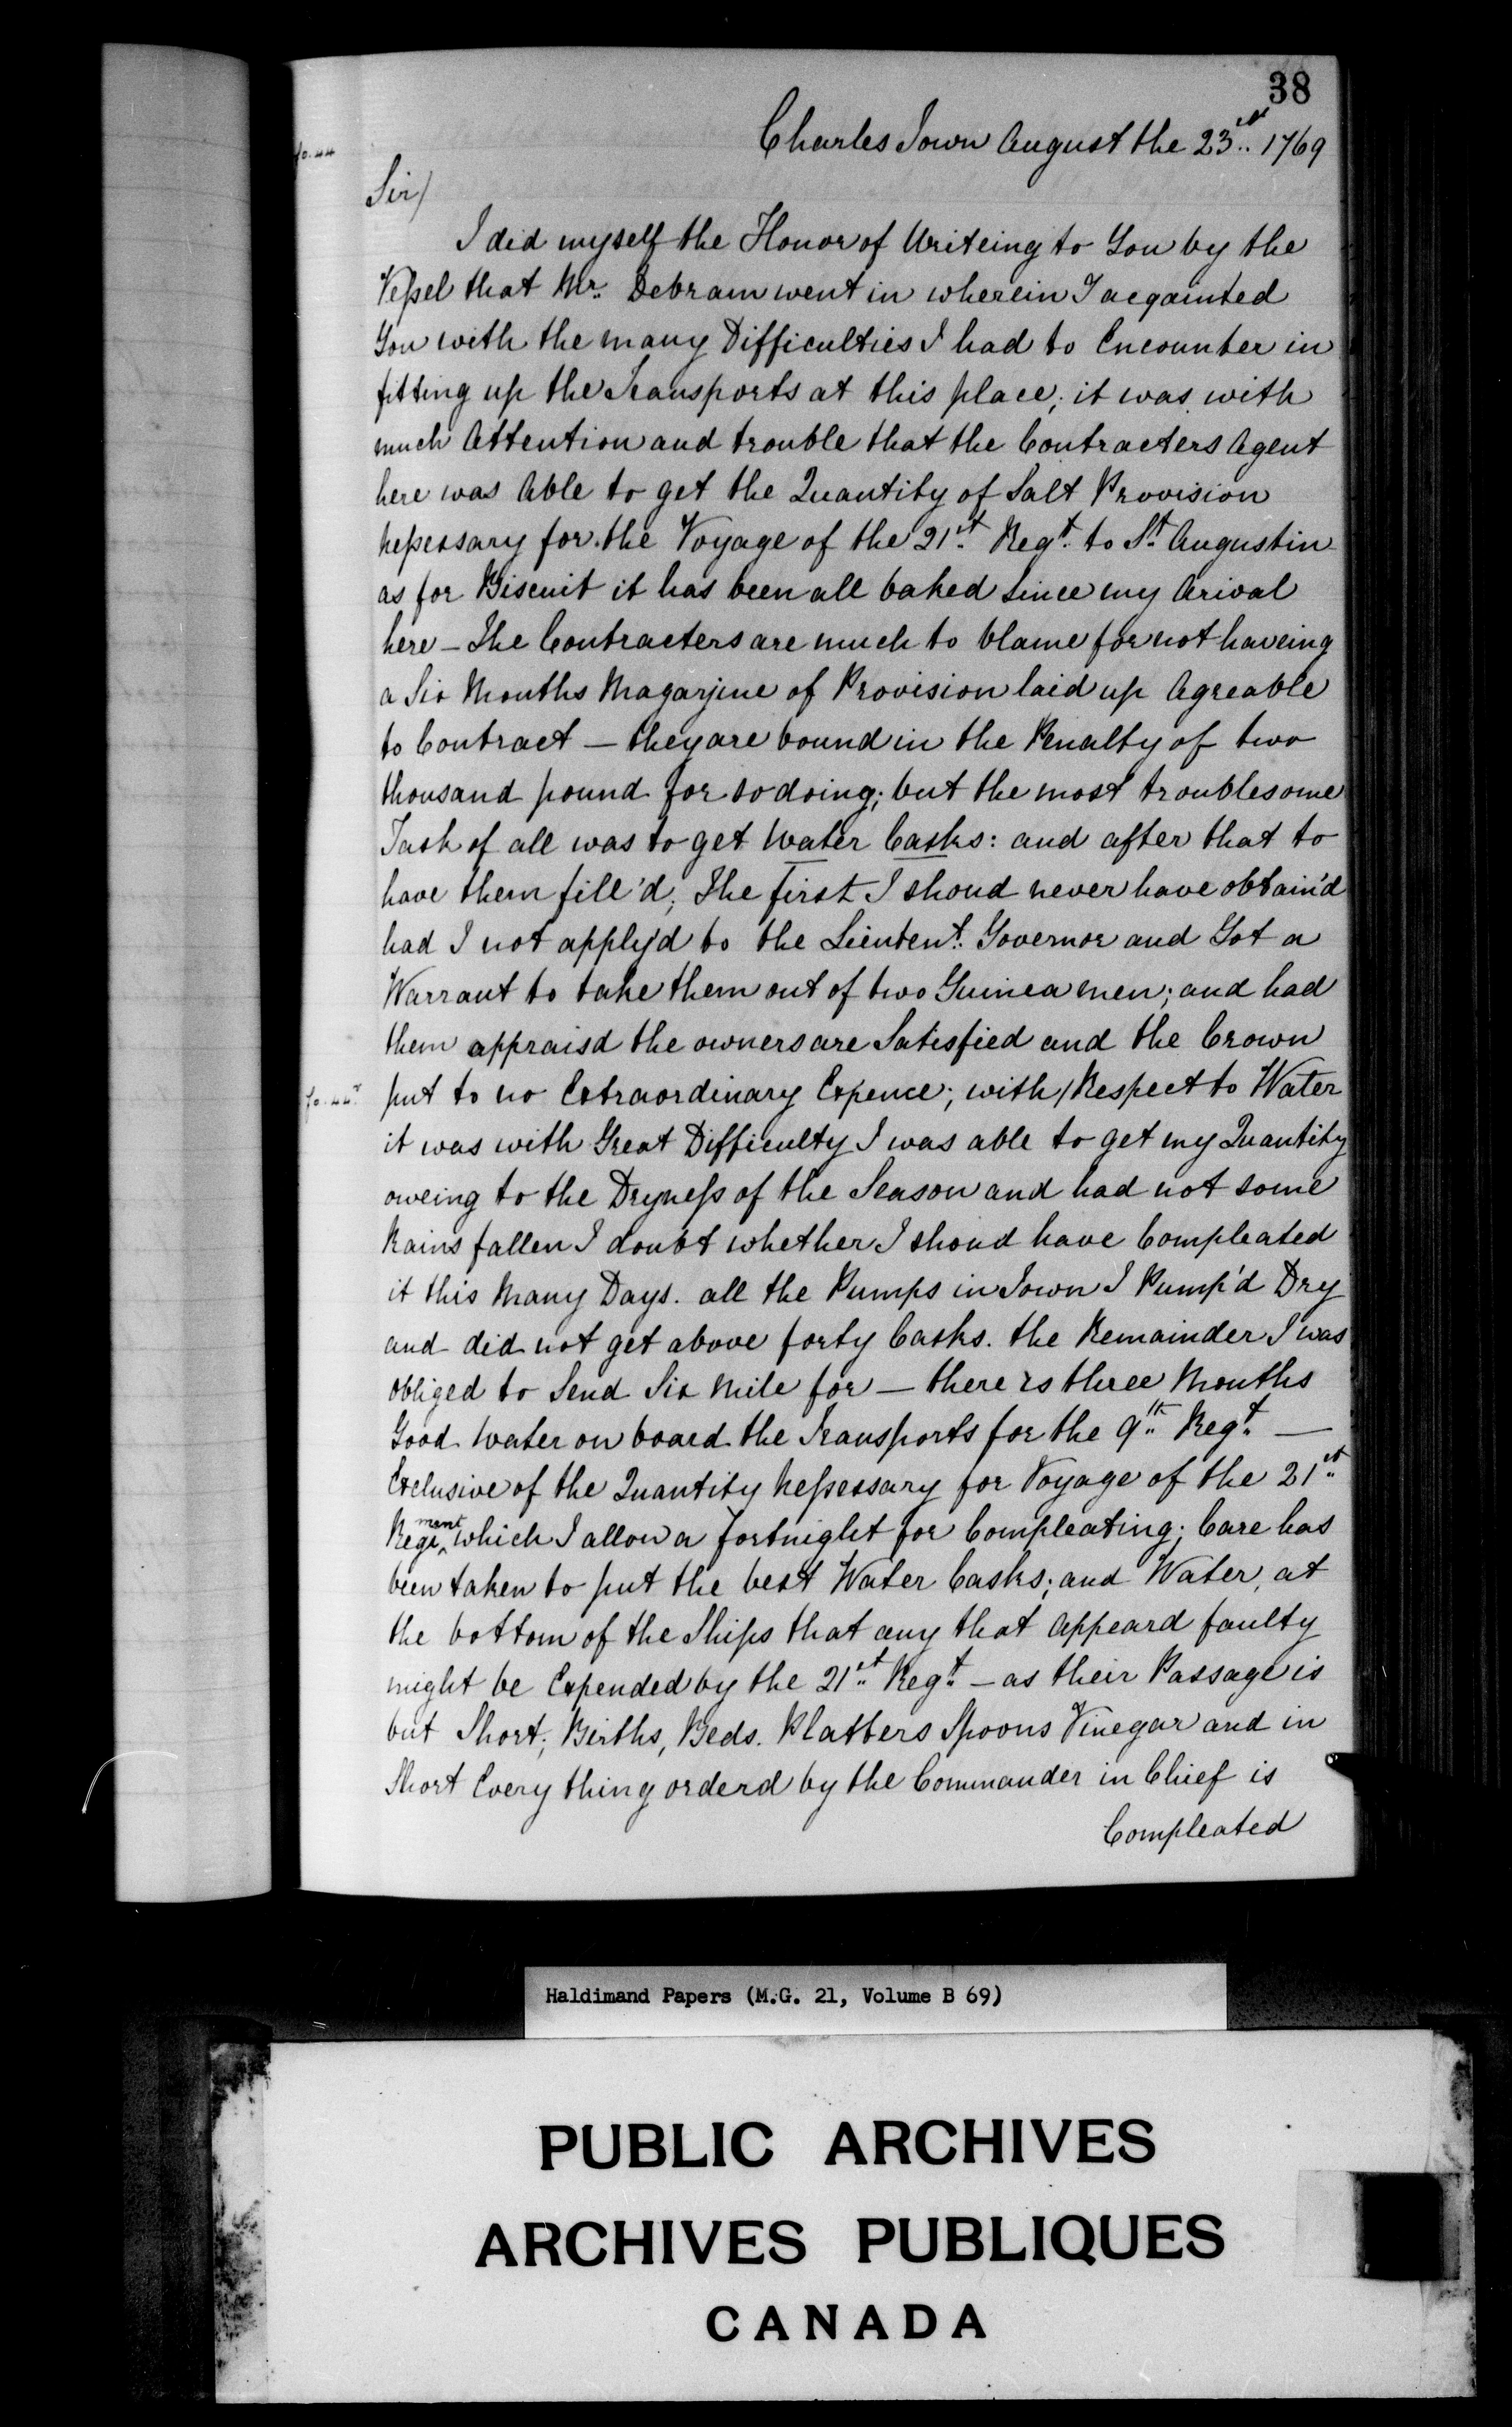 38
fo. 44
Charles Town August the 23rd.. 1769
Sir/
I did myself the Honor of Writeing to You by the
Vessel that Mr.. Debram went in wherein I acqainted
You with the many Difficulties I had to Encounter in
fitting up the Transports at this place; it was with
much Attention and trouble that the Contracters Agent
here was Able to get the Quantity of Salt Provision
nessessary for the Voyage of the 21st.. Regt.. to St. Augustin
as for Biscuit it has been all baked Since my Arival
here – The Contracters are much to blame for not haveing
a Six Months Magazine of Provision laid up Agreable
to Contract – they are bound in the Penalty of two
thousand pound for so doing; but the most troublesome
Task of all was to get Water Casks: and after that to
have them fill'd; The first I shoud never have obtain'd
had I not apply'd to the Lieutent.. Governor and Got a
Warrant to take them out of two Guinea men; and had
them appraisd the owners are Satisfied and the Crown
fo. 44v
put to no Extraordinary Expence; with/Respect to Water
it was with Great Difficulty I was able to get my Quantity
oweing to the Dryness of the Season and had not some
Rains fallen I doubt whether I shoud have Compleated
it this Many Days. all the Pumps in Town I Pump'd Dry
and did not get above forty Casks. the Remainder I was
obliged to Send Six Mile for – there is three Months
Good Water on board the Transports for the 9th.. Regt.. –
Exclusive of the Quantity Nessessary for Voyage of the 21st..
Regiment which I allow a fortnight for Compleating; Care has
been taken to put the best Water Casks; and Water, at
the bottom of the Ships that any that Appeard faulty
might be Expended by the 21st.. Regt.. – as their Passage is
but Short; Births, Beds. Platters Spoons Vinegar and in
Short Every thing orderd by the Commander in Chief is
Compleated
Haldimand Papers (M.G. 21, Volume B 69)
PUBLIC ARCHIVES
ARCHIVES PUBLIQUES
CANADA